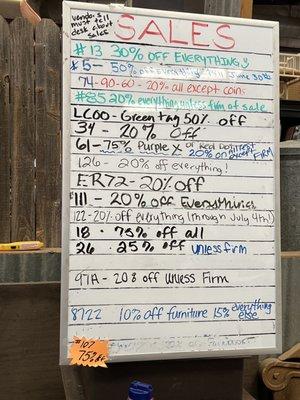 vendors
must tell
desk about
sales
SALES
#13 30% OFF EVERYTHING
#5- 50% off everything till June 30th
74-90-60-20% all except coins
#85 20% everything unless firm of sale
LC00-Green tag 50% off
34 - 20% off
61-75% Purple X or Red Dot
20% on except FIRM
126 - 20% off everything!
ER72-20% off
#111 - 20% OFF Everything
122-20% off everything (through July 4th!)
18 - 75% off all
26 . 25% off unless firm
97A - 20% off unless Firm
8722 10% off furniture 15% everything
else
#107
75% off